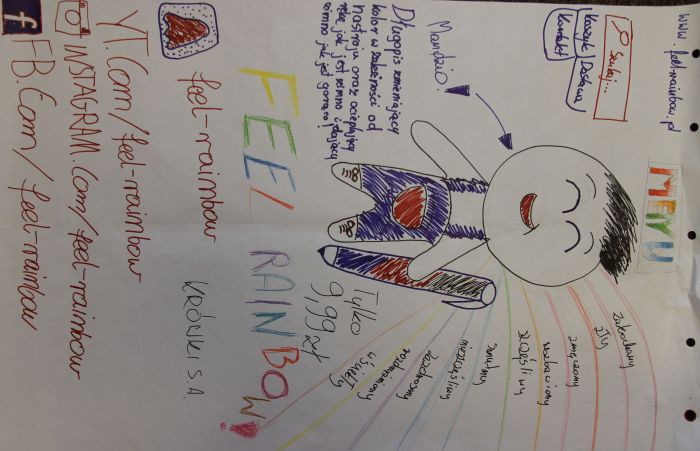 www feel-rainbow.pl
MENU
Szukaj...
Koszyk Dostawa
Kontakt
Mandzio!
Długopis zmieniający
kolor w zależności od
nastroju oraz ocieplający
rękę jak jest zimno i dający
zimno jak jest gorąco!
zakochany
zły
zmęczony
rozbawiony
szczęśliwy
smutny
nieszczęśliwy
zazdrosny
Tylko
9,99 zł
FEEL RAINBOW!
feel-rainbow
KRÓWKI S.A.
YT.Com/feel-rainbow
INSTAGRAM.Com/feel-rainbow
f FB.Com/feel-rainbow